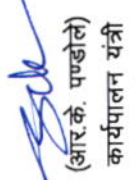 (आर.के. पण्डोले)
कार्यपालन यंत्री